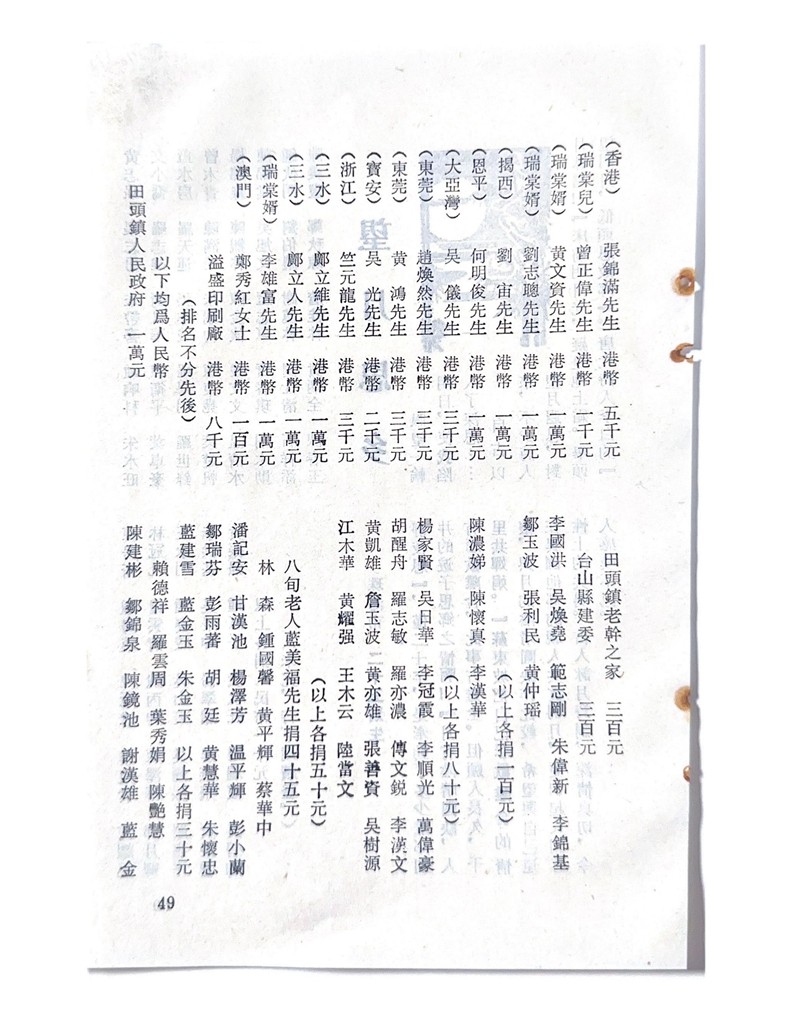 （香港） 張錦滿先生 港幣 五千元
（瑞棠兒） 曾正偉先生 港幣 一千元
（瑞棠婿） 黃文資先生 港幣 一萬元
（瑞棠婿） 劉志聰先生 港幣 一萬元
（揭西） 劉 宙先生 港幣 一萬元
（恩平） 何明俊先生 港幣 一萬元
（大亞灣） 吳 儀先生 港幣 三千元
（東莞） 趙煥然先生 港幣 三千元
（東莞） 黃 鴻先生 港幣 三千元
（寶安） 吳 光先生 港幣 二千元
（浙江） 竺元龍先生 港幣 三千元
（三水） 鄺立維先生 港幣 一萬元
（三水） 鄺立人先生 港幣 一萬元
（瑞棠婿） 李雄富先生 港幣 一萬元
（澳門） 鄭秀紅女士 港幣 一百元
溢盛印刷廠 港幣 八千元
（排名不分先後）
以下均爲人民幣
田頭鎮人民政府 一萬元
田頭鎮老幹之家 三百元
台山縣建委 三百元
李國洪 吳煥堯 範志剛 朱偉新 李錦基
鄒玉波 張利民 黃仲瑶
（以上各捐一百元）
陳濃娣 陳懷真 李漢華
（以上各捐八十元）
楊家賢 吳日華 李冠霞 李順光 萬偉豪
胡醒舟 羅志敏 羅亦濃 傅文鋭 李漢文
黃凱雄 詹玉波 黃亦雄 張善資 吳樹源
江木華 黃耀强 王木云 陸當文
（以上各捐五十元）
八旬老人藍美福先生捐四十五元
林 森 鍾國馨 黃平輝 蔡華中
潘記安 甘漢池 楊澤芳 温平輝 彭小蘭
鄒瑞芬 彭雨蕃 胡 廷 黃慧華 朱懷忠
藍建雪 藍金玉 朱金玉 以上各捐三十元
賴德祥 羅雲周 葉秀娟 陳艷慧
陳建彬 鄒錦泉 陳鏡池 謝漢雄 藍 金
49